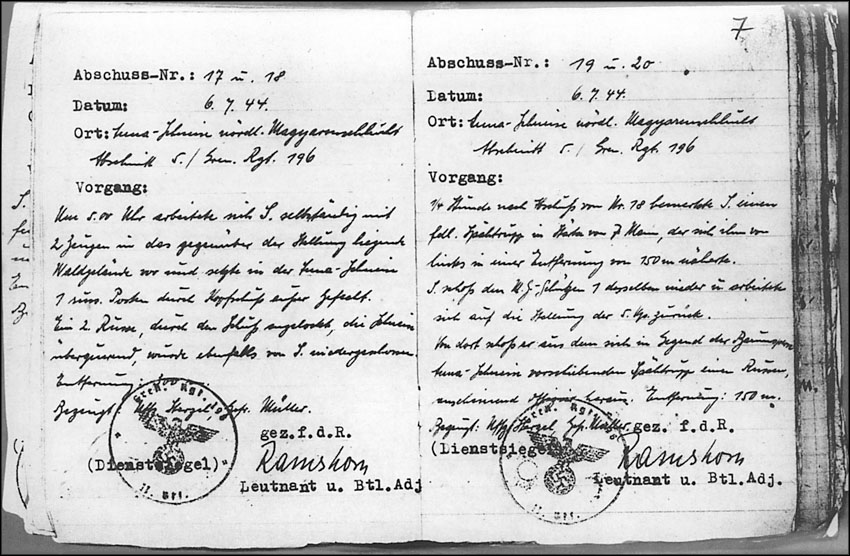 Abschuss-Nr.: 17 u. 18
Datum: 6.7.44.
Ort: Luna-Schneise nördl. Magyarenschlucht
Abschnitt 5./ Gren. Rgt. 196
Vorgang:
Um 5.00 Uhr arbeitete sich S. selbständig mit
2 Zeugen in das gegenüber der Stellung liegende
Waldgelände vor und setzte in der Luna-Schneise
1 russ. Posten durch Kopfschuß außer Gefecht.
Ein 2. Russe, durch den Schuß angelockt, die Schneise
überquerend, wurde ebenfalls von S. niedergeschossen.
Entfernung:
Bezeugt: Uffz. Gefr. Müller.
gez.f.d.R.
(Dienstsiegel)
Ramshorn
Leutnant u. Btl.Adj
Gren. Rgt. 196
II. Btl.
7
Abschuss-Nr.: 19 u. 20
Datum: 6.7.44.
Ort: Luna-Schneise nördl. Magyarenschlucht
Abschnitt 5./ Gren. Rgt. 196
Vorgang:
1/4 Stunde nach Abschuß von Nr. 18 bemerkte S. einen
fdl. Spähtrupp in Stärke von 7 Mann, der sich ihm von
links in einer Entfernung von 150 m näherte.
S. schoß den M.G.-Schützen 1 desselben nieder u. arbeitete
sich auf die Stellung der 5. Kp. zurück.
Von dort schoß er aus dem sich in Gegend der Baumsperre
Luna-Schneise vorschiebenden Spähtrupp einen Russen,
anscheinend Offizier heraus. Entfernung: 150 m.
Bezeugt: Uffz. Gefr. Müller gez. f.d.R.
(Dienstsiegel)
Ramshorn
Leutnant u. Btl.Adj.
Gren. Rgt.
II. Btl.